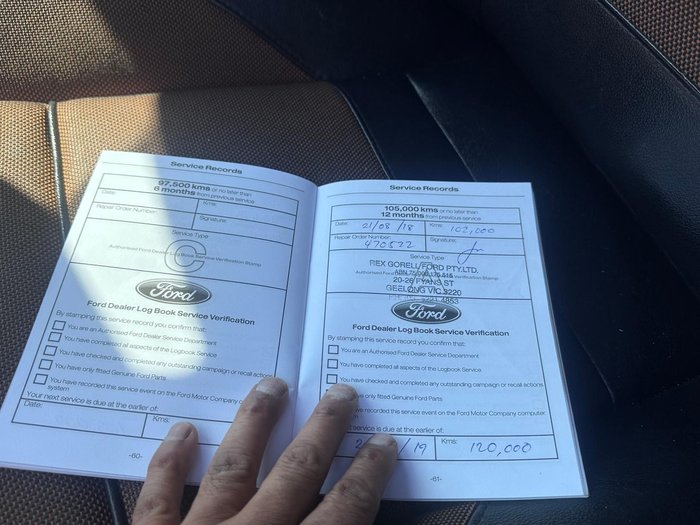 Service Records
97,500 kms or no later than
6 months from previous service
Date:
Kms:
Repair Order Number:
Signature:
Service Type
C
Authorised Ford Dealer Log Book Service Verification Stamp
Ford
Ford Dealer Log Book Service Verification
By stamping this service record you confirm that:
You are an Authorised Ford Dealer Service Department
You have completed all aspects of the Logbook Service
You have checked and completed any outstanding campaign or recall actions
You have only fitted Genuine Ford Parts
You have recorded this service event on the Ford Motor Company
system
Your next service is due at the earlier of:
Date:
Kms:
-60-
Service Records
105,000 kms or no later than
12 months from previous service
Date: 21/08/18
Kms: 102,000
Repair Order Number:
470522
Signature:
Service Type
REX GORELL FORD PTY.LTD.
20-26 FYANS ST
GEELONG VIC 3220
Ford
Ford Dealer Log Book Service Verification
By stamping this service record you confirm that:
You are an Authorised Ford Dealer Service Department
You have completed all aspects of the Logbook Service
You have checked and completed any outstanding campaign or recall actions
have only fitted Genuine Ford Parts
recorded this service event on the Ford Motor Company computer
service is due at the earlier of:
/19
Kms: 120,000
-61-